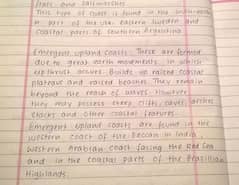 flats and saltmarshes
This type of coast is found in the
part of the USA Eastern Sweden and
coastal parts of southern Argentina
Emergent upland coasts. These are formed
due to great earth movements, in which
upthrust occurs. Builds up raised coastal
plateaus and raised beaches. They remain
beyond the reach of waves. However
they may possess steep cliffs, caves, arches
stacks and other coastal features.
Emergent upland coasts are found in the
western coast of the Deccan in India,
Western Arabian coast facing the Red Sea
and in the coastal parts of the Brazilian
Highlands.